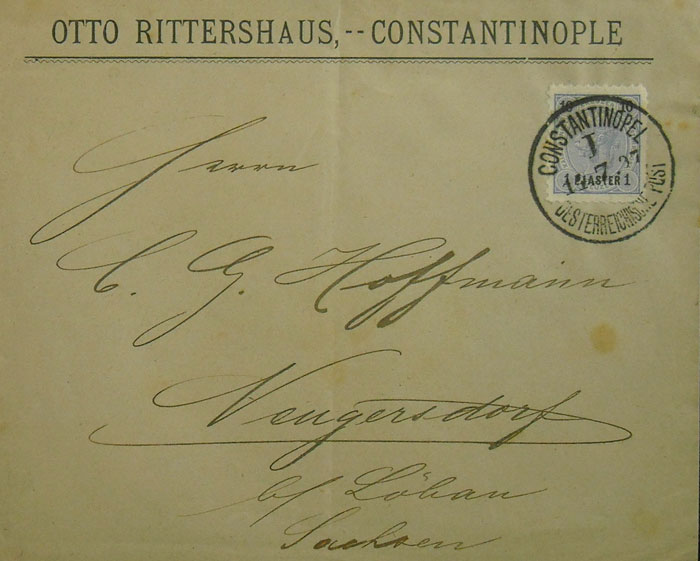 OTTO RITTERSHAUS, -- CONSTANTINOPLE
10 10
CONSTANTINOPEL
I
7.97
1 PIASTER 1
OESTERREICHISCHE POST
Herrn
C. G. Hoffmann
Neugersdorf
b/ Löbau
Sachsen